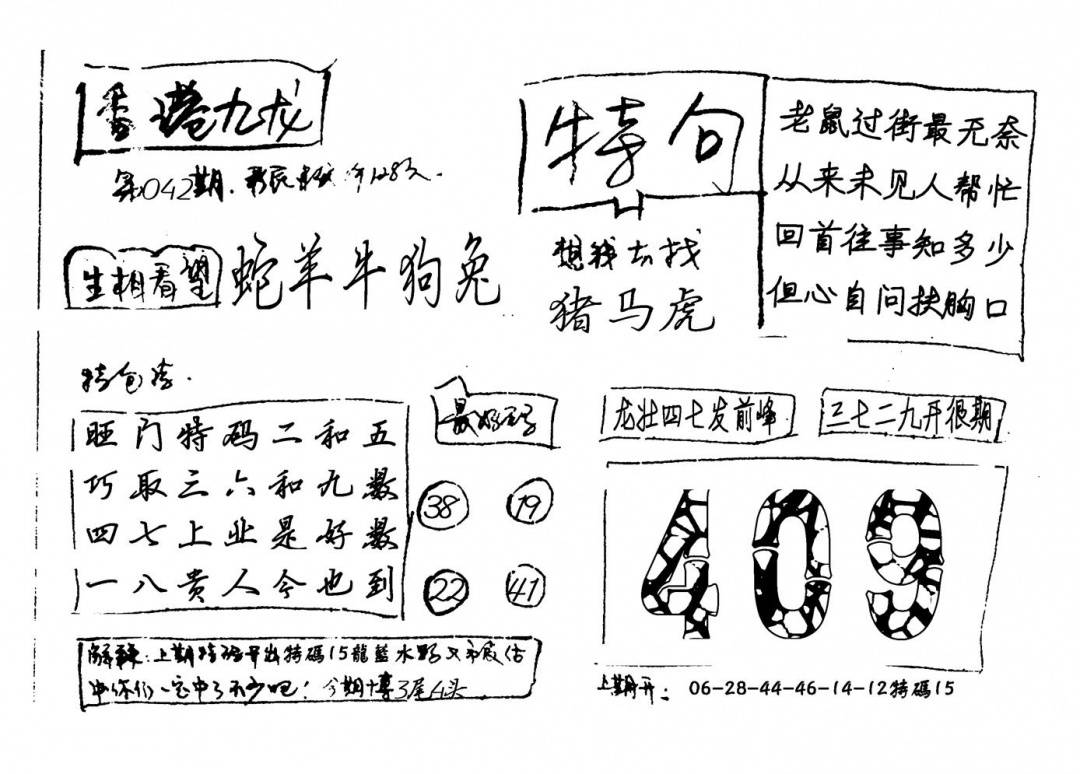 香港九龙
第042期.
生相看望
蛇羊牛狗兔
特句
想我去找
猪马虎
老鼠过街最无奈
从来未见人帮忙
回首往事知多少
但心自问扶胸口
特包
旺门特码二和五
巧取三六和九数
四七上业是好数
一八贵人今也到
最好
38 19
22 41
龙壮四七发前峰
三七二九开很期
409
上期特码早出特碼15龍藍水
中你们一定中了不少吧！今期博3尾4头
上期开：06-28-44-46-14-12特碼15